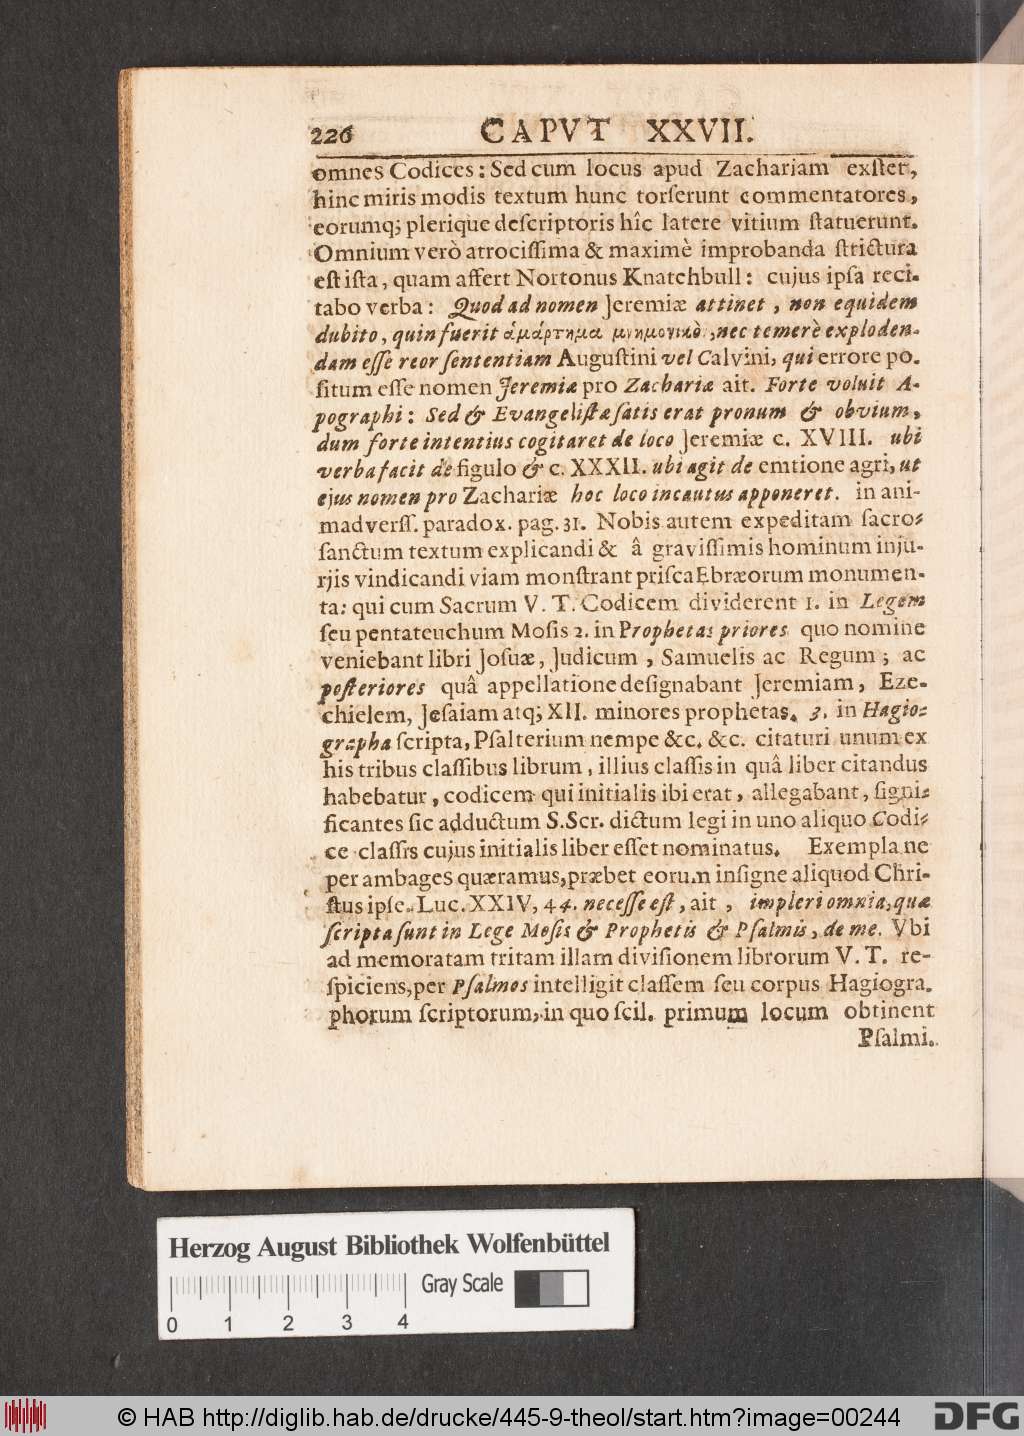 226 CAPVT XXVII.
omnes Codices: Sed cum locus apud Zachariam exſtet,
hinc miris modis textum hunc torſerunt commentatores,
eorumq; plerique deſcriptoris hîc latere vitium ſtatuerunt.
Omnium verò atrociſſima & maximè improbanda ſtrictura
eſt iſta, quam affert Nortonus Knatchbull: cujus ipſa reci-
tabo verba: Quod ad nomen Jeremiæ attinet, non equidem
dubito, quin fuerit ἁμάρτημα μνημονικὸ, nec temerè exploden-
dam eſſe reor ſententiam Auguſtini vel Calvini, qui errore po-
ſitum eſſe nomen Jeremiæ pro Zachariæ ait. Forte voluit A-
pographi: Sed & Evangeliſtæ ſatis erat pronum & obvium,
dum forte intentius cogitaret de loco Jeremiæ c. XVIII. ubi
verba facit de figulo & c. XXXII. ubi agit de emtione agri, ut
ejus nomen pro Zachariæ hoc loco incautus apponeret. in ani-
madverſſ. paradox. pag. 31. Nobis autem expeditam ſacro-
ſanctum textum explicandi & â graviſſimis hominum inju-
rjis vindicandi viam monſtrant priſca Ebræorum monumen-
ta: qui cum Sacrum V. T. Codicem dividerent 1. in Legem
ſeu pentateuchum Moſis 2. in Prophetas priores quo nomine
veniebant libri Joſuæ, Judicum, Samuelis ac Regum; ac
poſteriores quâ appellatione deſignabant Jeremiam, Eze-
chielem, Jeſaiam atq; XII. minores prophetas. 3. in Hagio-
grapha ſcripta, Pſalterium nempe &c. &c. citaturi unum ex
his tribus claſſibus librum, illius claſſis in quâ liber citandus
habebatur, codicem qui initialis ibi erat, allegabant, ſigni-
ficantes ſic adductum S. Scr. dictum legi in uno aliquo Codi-
ce claſſis cujus initialis liber eſſet nominatus. Exempla ne
per ambages quæramus, præbet eorum inſigne aliquod Chri-
ſtus ipſe. Luc. XXIV, 44. neceſſe eſt, ait, impleri omnia, quæ
ſcripta ſunt in Lege Moſis & Prophetis & Pſalmis, de me. Vbi
ad memoratam tritam illam diviſionem librorum V. T. re-
ſpiciens, per Pſalmos intelligit claſſem ſeu corpus Hagiogra-
phorum ſcriptorum, in quo ſcil. primum locum obtinent
Pſalmi.
Herzog August Bibliothek Wolfenbüttel
Gray Scale
0 1 2 3 4
© HAB http://diglib.hab.de/drucke/445-9-theol/start.htm?image=00244 DFG